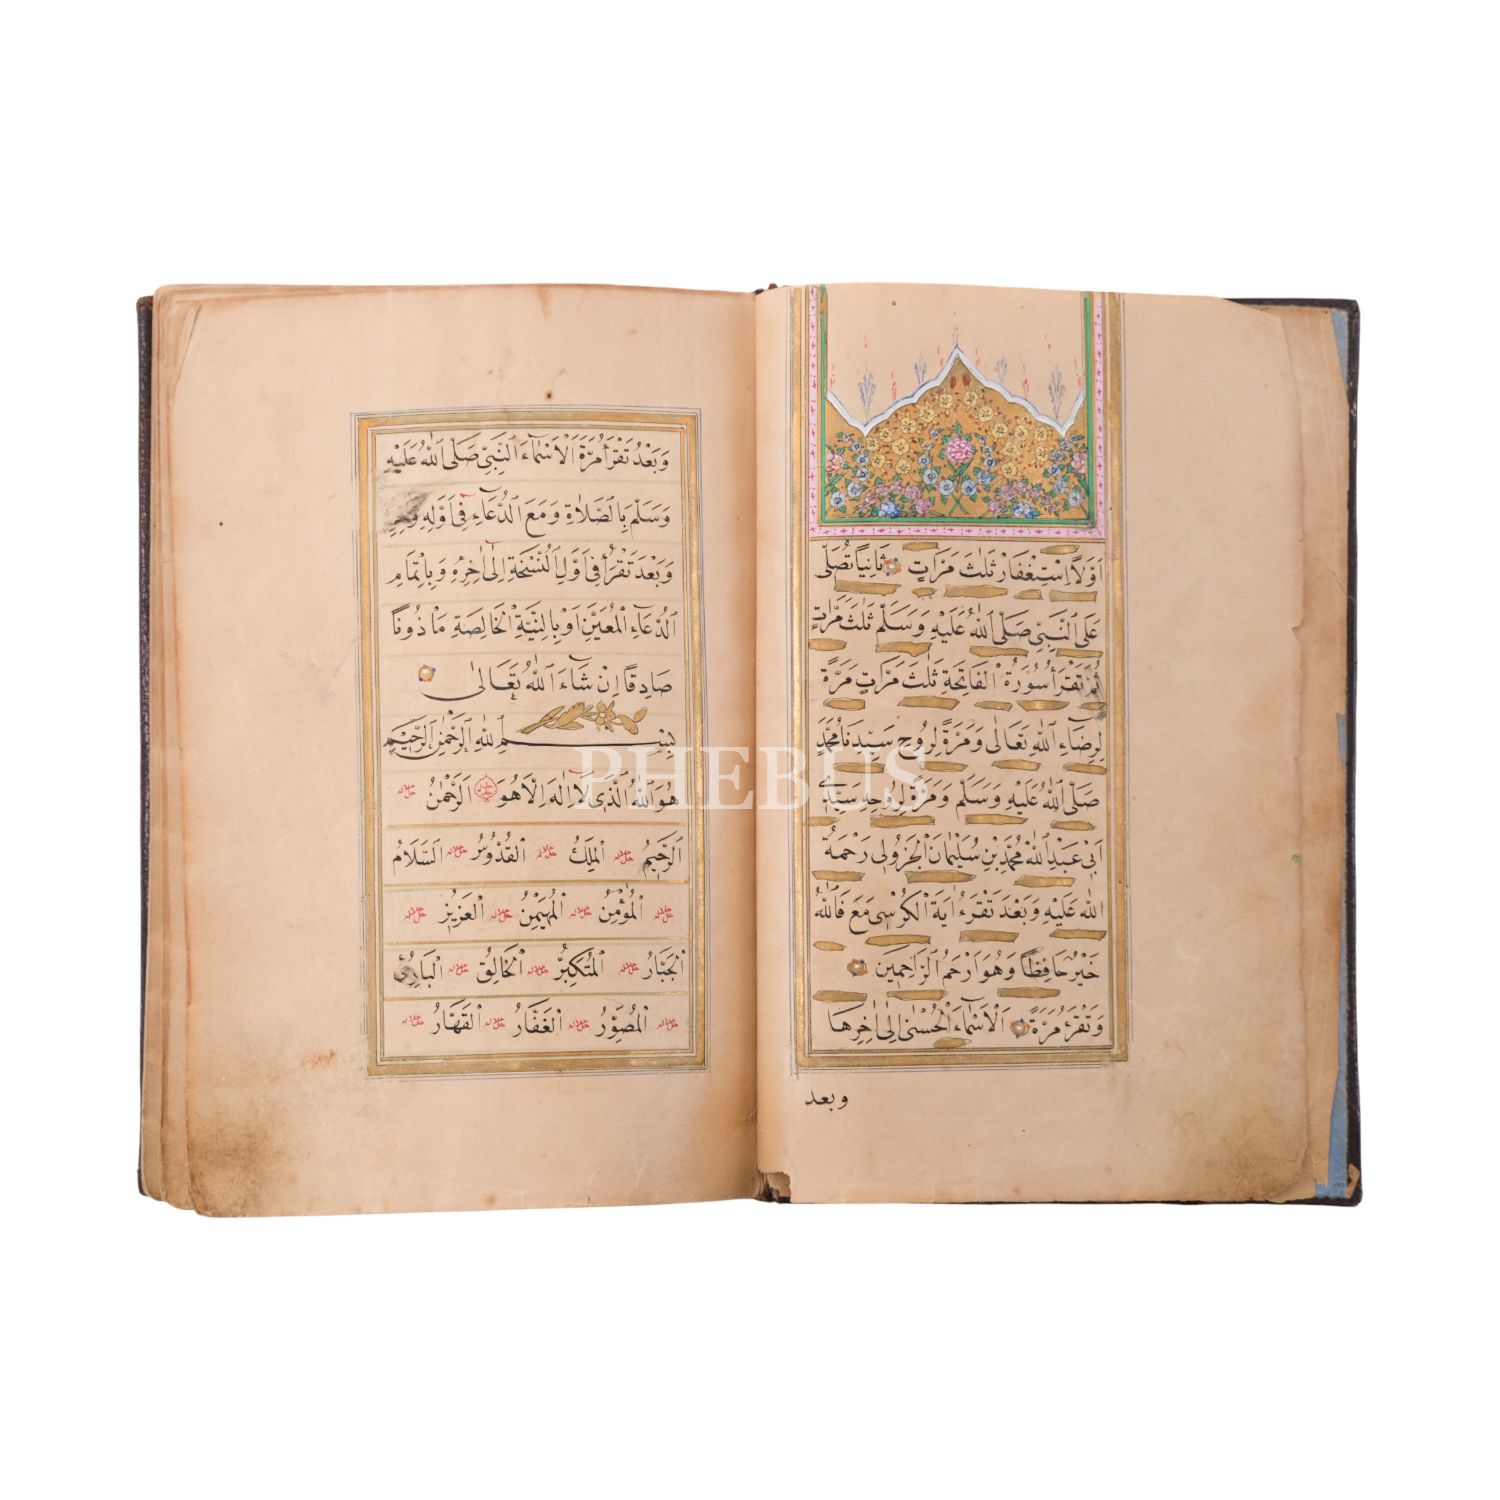 اَوَّلًا اِسْتِغْفَار ثَلٰثَ مَرَّاتٍ ثَانِيًا تُصَلّٖى
عَلَى النَّبِيِّ صَلَّى اللّٰهُ عَلَيْهِ وَسَلَّمَ ثَلٰثَ مَرَّاتٍ
ثُمَّ تَقْرَأُ سُورَةُ الْفَاتِحَةِ ثَلٰثَ مَرَّاتٍ مَرَّةً
لِرِضَاءِ اللّٰهِ تَعَالٰى وَمَرَّةً لِرُوحِ سَيِّدِنَا مُحَمَّدٍ
صَلَّى اللّٰهُ عَلَيْهِ وَسَلَّمَ وَمَرَّةً لِرُوحِ سَيِّدٖى
اَبٖى عَبْدِ اللّٰهِ مُحَمَّدِ بْنِ سُلَيْمَانَ الْجَزُولٖى رَحْمَةُ
اللّٰهِ عَلَيْهِ وَبَعْدَ تَقْرَءُ اٰيَةَ الْكُرْسٖى مَعَ فَاللّٰهُ
خَيْرٌ حَافِظًا وَهُوَ اَرْحَمُ الرَّاحِمٖينَ
وَتَقْرَءُ مَرَّةً الْاَسْمَاءَ الْحُسْنٰى اِلٰى اٰخِرِهَا
وبعد
وَبَعْدُ تَقْرَأُ مَرَّةً الْاَسْمَاءَ النَّبِيِّ صَلَّى اللّٰهُ عَلَيْهِ
وَسَلَّمَ بِالصَّلَاةِ وَمَعَ الدُّعَاءِ فٖى اَوَّلِهِ
وَبَعْدَ تَقْرَأُ فٖى اَوَّلِ النُّسْخَةِ اِلٰى اٰخِرِهِ وَبِاِتْمَامِ
الدُّعَاءِ الْمُعَيَّنِ اَوْ بِالنِّيَّةِ الْخَالِصَةِ مَاْذُونًا
صَادِقًا اِنْ شَاءَ اللّٰهُ تَعَالٰى
بِسْمِ اللّٰهِ الرَّحْمٰنِ الرَّحِيمِ
هُوَ اللّٰهُ الَّذٖى لَا اِلٰهَ اِلَّا هُوَ جل جلاله الرَّحْمٰنُ جل جلاله
الرَّحِيمُ جل جلاله الْمَلِكُ جل جلاله الْقُدُّوسُ جل جلاله السَّلَامُ
جل جلاله الْمُؤْمِنُ جل جلاله الْمُهَيْمِنُ جل جلاله الْعَزِيزُ جل جلاله
الْجَبَّارُ جل جلاله الْمُتَكَبِّرُ جل جلاله الْخَالِقُ جل جلاله الْبَارِئُ
جل جلاله الْمُصَوِّرُ جل جلاله الْغَفَّارُ جل جلاله الْقَهَّارُ جل جلاله
PHEBUS